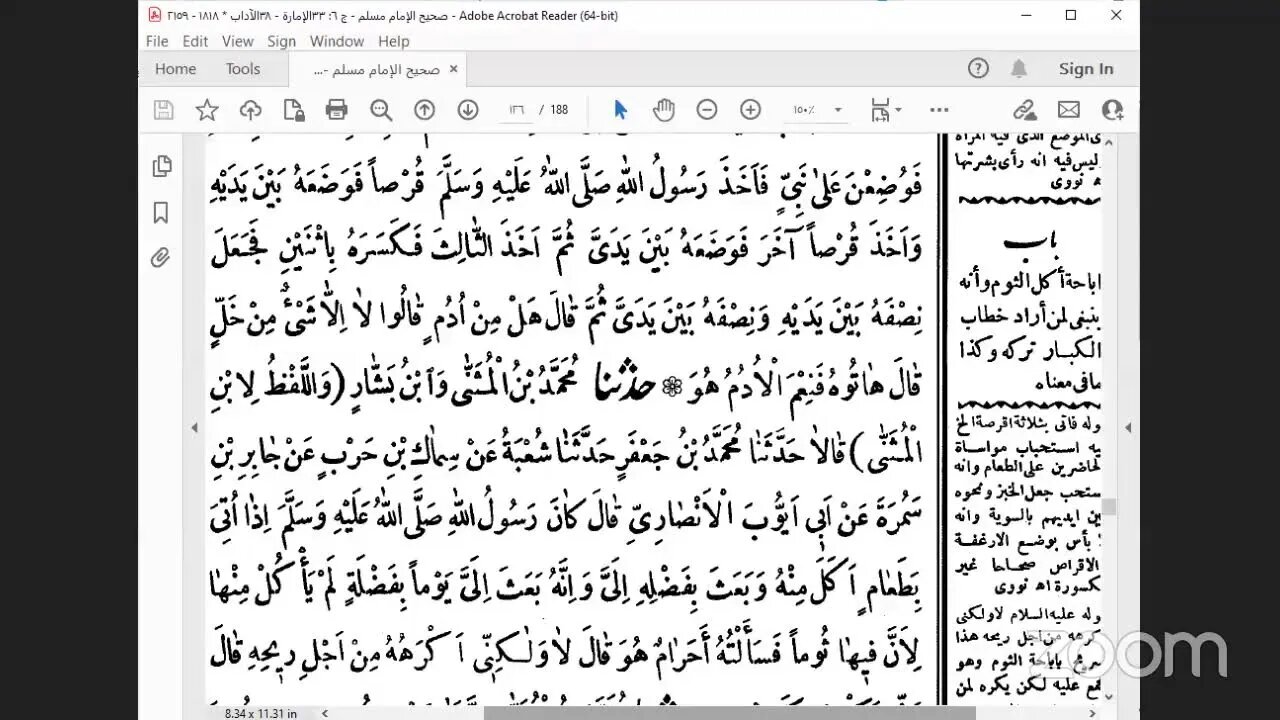 صحيح الإمام مسلم - ج ٦: ٣٣الإمارة - ٣٨الآداب * ١٨١٨ - ٢١٥٩ - Adobe Acrobat Reader (64-bit)
File Edit View Sign Window Help
Home Tools صحيح الإمام مسلم -... × Sign In
١٣٦ / 188 ١٥٠٪
فَوُضِعْنَ عَلىٰ نَبِيٍّ فَاَخَذَ رَسُولُ اللهِ صَلَّى اللهُ عَلَيْهِ وَسَلَّمَ قُرْصاً فَوَضَعَهُ بَيْنَ يَدَيْهِ
وَاَخَذَ قُرْصاً آخَرَ فَوَضَعَهُ بَيْنَ يَدَىَّ ثُمَّ اَخَذَ الثّالِثَ فَكَسَرَهُ بِاثْنَيْنِ فَجَعَلَ
نِصْفَهُ بَيْنَ يَدَيْهِ وَنِصْفَهُ بَيْنَ يَدَىَّ ثُمَّ قٰالَ هَلْ مِنْ اُدُمٍ قٰالُوا لاٰ اِلاّٰ شَىْءٌ مِنْ خَلٍّ
قٰالَ هٰاتُوهُ فَنِعْمَ الْاُدُمُ هُوَ ❁ حدثنا مُحَمَّدُ بْنُ الْمُثَنّٰى وَابْنُ بَشّٰارٍ (وَاللَّفْظُ لِابْنِ
الْمُثَنّٰى) قٰالاٰ حَدَّثَنٰا مُحَمَّدُ بْنُ جَعْفَرٍ حَدَّثَنٰا شُعْبَةُ عَنْ سِمٰاكِ بْنِ حَرْبٍ عَنْ جٰابِرِ بْنِ
سَمُرَةَ عَنْ اَبي اَيُّوبَ الْاَنْصٰارِيِّ قٰالَ كٰانَ رَسُولُ اللهِ صَلَّى اللهُ عَلَيْهِ وَسَلَّمَ اِذٰا اُتِىَ
بِطَعٰامٍ اَكَلَ مِنْهُ وَبَعَثَ بِفَضْلِهِ اِلَىَّ وَاِنَّهُ بَعَثَ اِلَىَّ يَوْماً بِفَضْلَةٍ لَمْ يَأْكُلْ مِنْهٰا
لِاَنَّ فيهٰا ثُوماً فَسَأَلْتُهُ أَحَرٰامٌ هُوَ قٰالَ لاٰ وَلٰكِنّى اَكْرَهُهُ مِنْ اَجْلِ ريحِهِ قٰالَ
ى الموضع الذى فيه المرأة
ليس فيه انه رأى بشرتها
اه نووى
باب
اباحة أكل الثوم وأنه
ينبغى لمن أراد خطاب
الكبار تركه وكذا
مافى معناه
وله فاتى بثلاثة اقرصة الخ
يه استحباب مواساة
لحاضرين على الطعام وانه
ستحب جعل الخبز ونحوه
ين ايديهم بالسوية وانه
بأس بوضع الارغفة
الاقراص صحاحا غير
كسورة اه نووى
وله عليه السلام لا ولكنى
كرهه من أجل ريحه هذا
باباحة الثوم وهو
ع عليه لكن يكره لمن
zoom
8.34 x 11.31 in